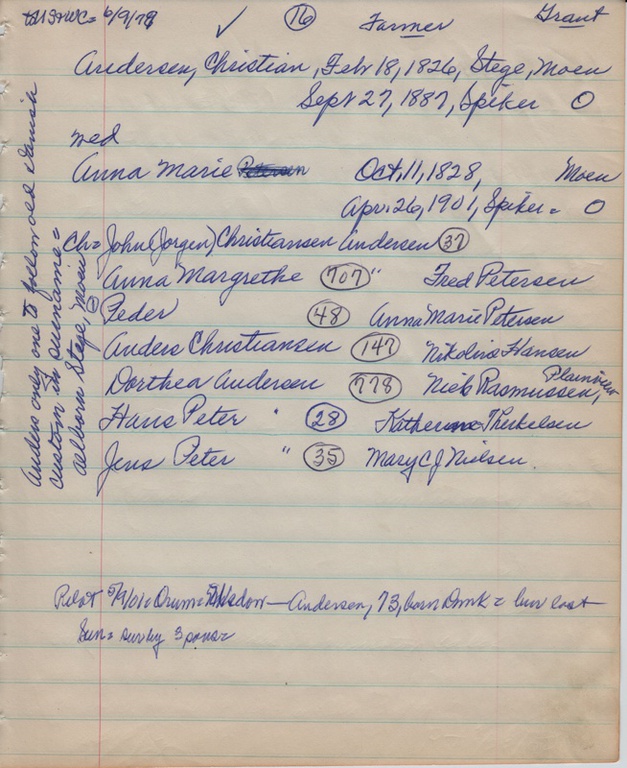 6/9/78 ✓ 16 Farmer Grant
Andersen, Christian, Feb 18, 1826, Stege, Moen
Sept 27, 1887, Spiker O
wed
Anna Marie Petersen Oct, 11, 1828, Moen
Apr. 26, 1901, Spiker = O
Ch = John (Jorgen) Christiansen Andersen 37
Anna Margrethe 707 " Fred Petersen
Peder 48 Anna Marie Petersen
Anders Christiansen 147 Nikoline Hansen
Dorthea Andersen 778 Niels Rasmussen, Plainview
Hans Peter " 28 Katherine Therkelsen
Jens Peter " 35 Mary C J Nielsen.
Anders only one to follow old Danish
custom in surname =
all born Stege, Moen
Pilot 5/9/01 = Orum = Andersen, 73, born Dmk = bur last
Sun = surv by 3 sons =